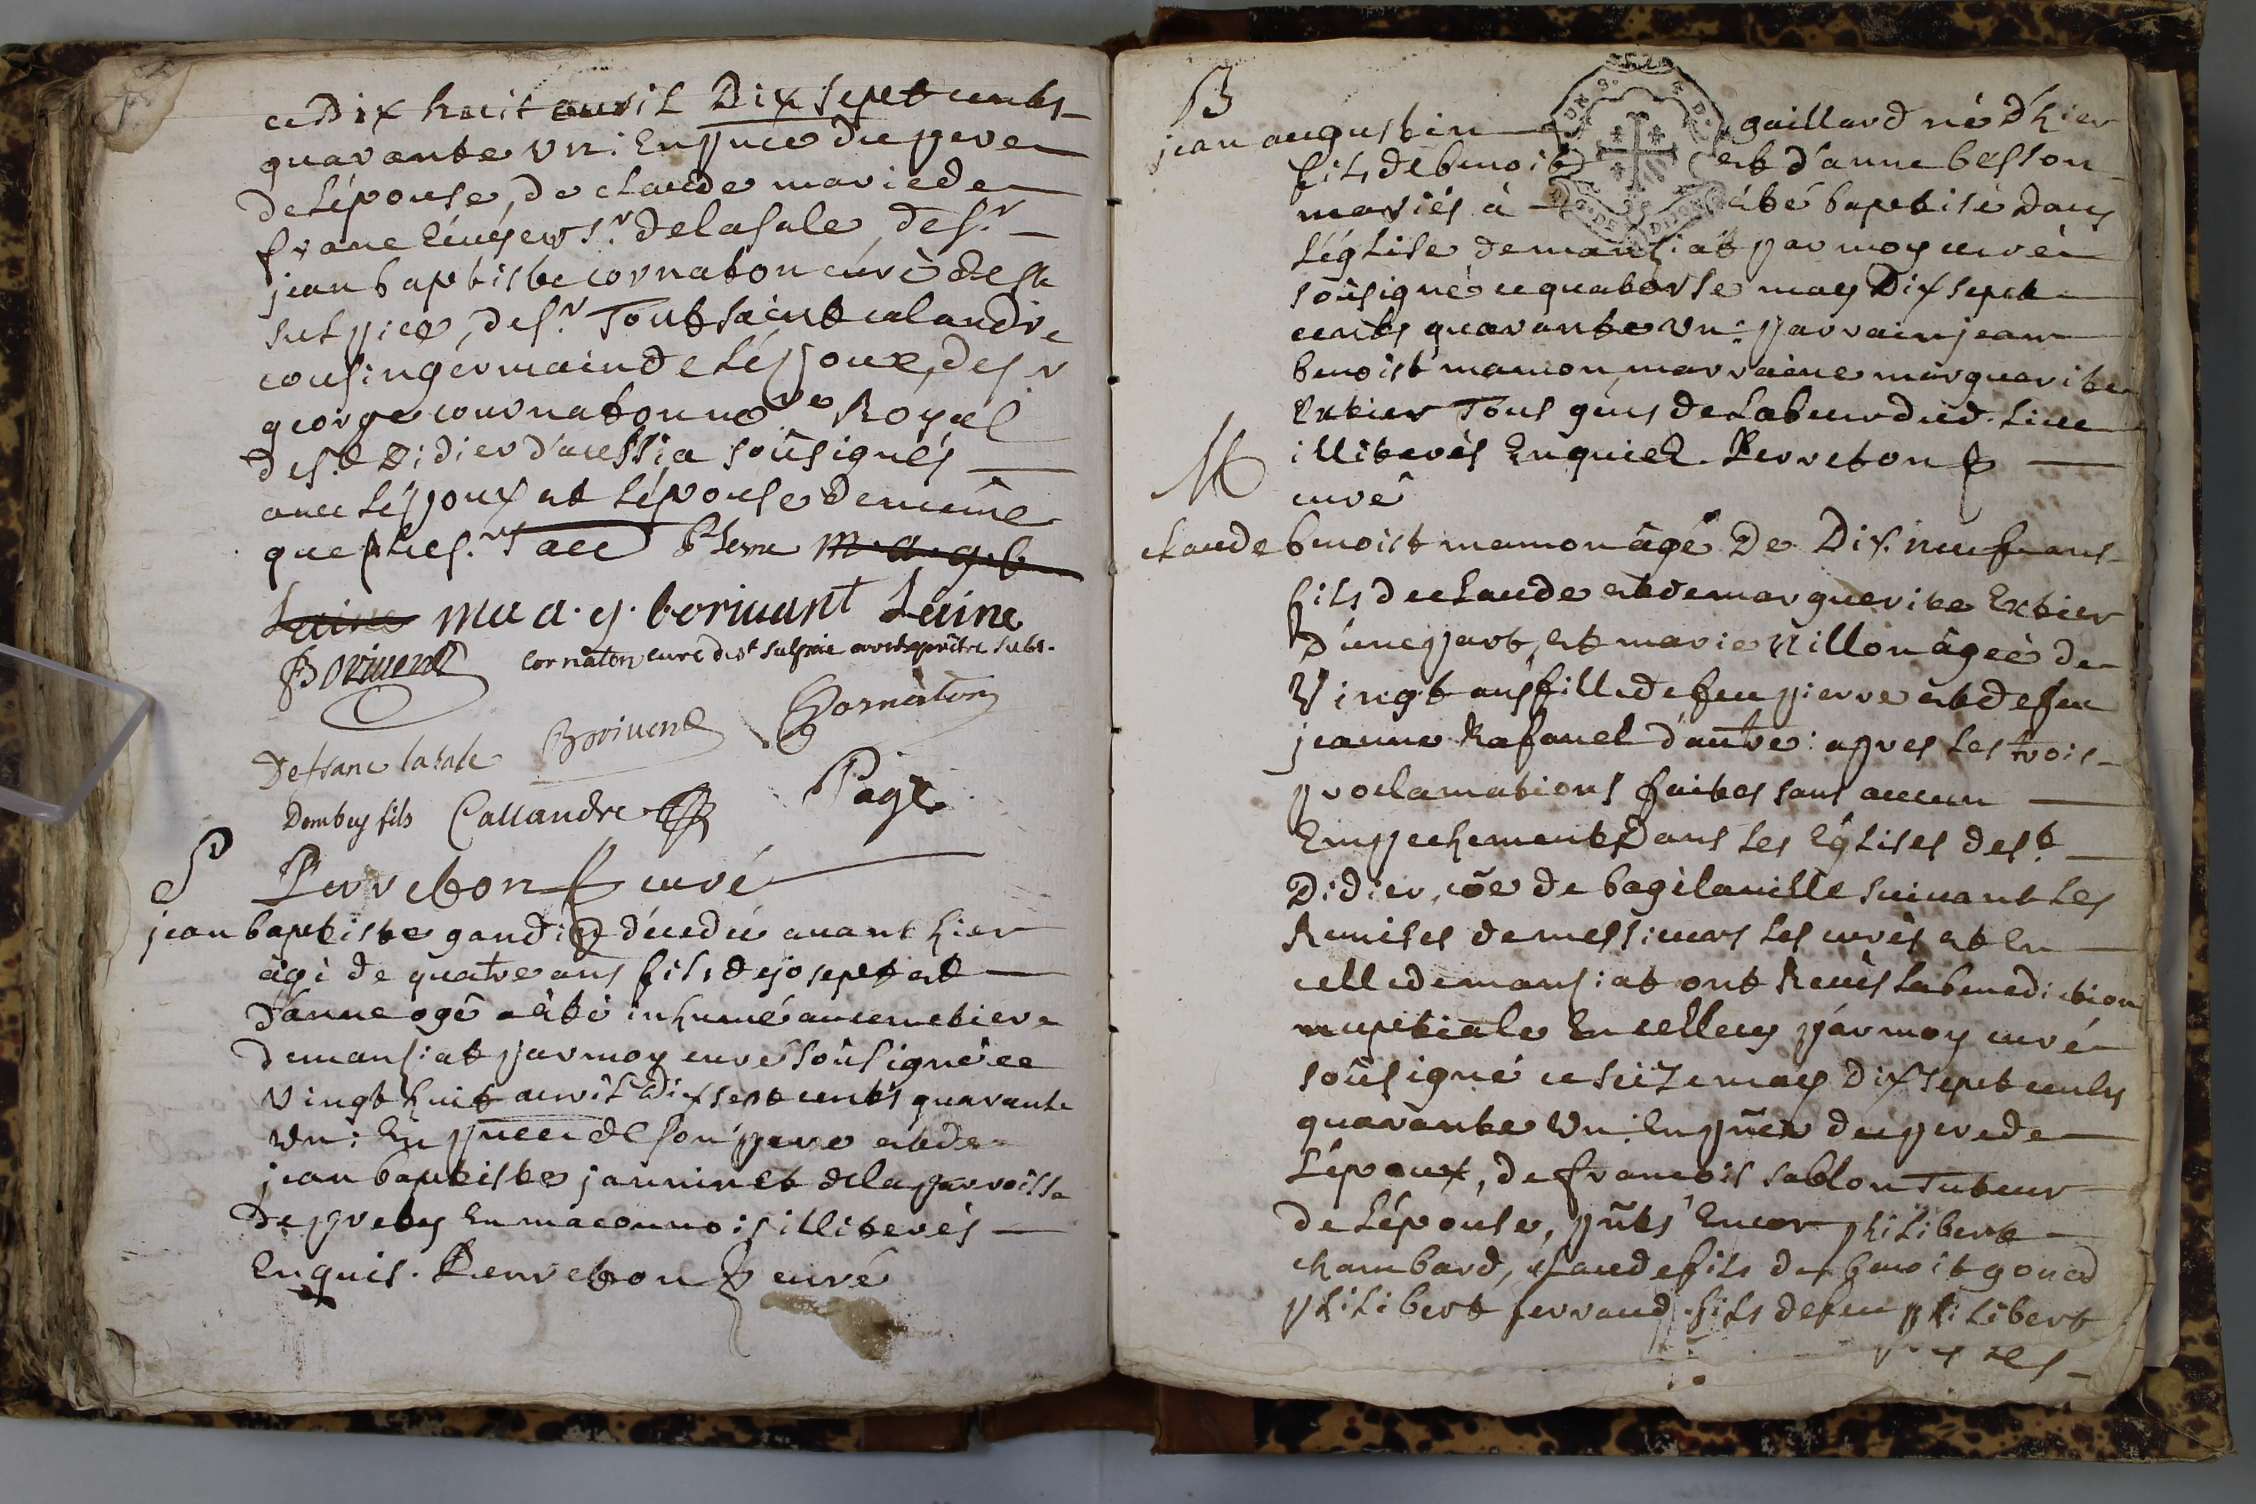 ce Dix huit avril Dix sept cents
quarante un: En pnce du pere
de Lépouse, de claude marie de
franc Ecuyer sr. delasale, de sr.
jean baptiste cornaton curé de st
sulpice, de sr. Toutsaint calandre
cousin germain de L'époux, de sr
george cournaton nore Royal
de st. Didier d'aussia soûsignés
avec L'époux et L'épouse de mème
que
Laine ma a. g. borivant Laine
Borivent cornaton curé de st sulpice archiprêtre subs.
Defranc lasale Borivent Cornaton
Dombey fils Callandre Page
S Perreton curé
jean baptiste gandin décedé avant hier
âgé de quatre ans fils de josept et
d'anne ogê a èté inhumé au cemetiere
de mansiat par moy curé soûsigné ce
vingt huit avril dix sept cents quarante
un: En pnce de son pere et de
jean baptiste janninet de la parroisse
de prety En maconnois illiterés
Enquis. Perreton curé
B
jean augustin gaillard né d'hier
fils de benoit et d'anne besson
mariés à èté baptisé dans
L'église de mansiat par moy curé
soûsigné ce quatorse may Dix sept
cents quarante un: parrain jean
benoist mamon, marraine marguerite
Extier Tous gens de Labeur dud. Lieu
illiterés Enquie. Perreton
M curé
claude benoist mamon âgé De Dix neuf ans
fils de claude et de marguerite Extier
D'une part, et marie pillon âgeé de
Vingt ans fille de feu pierre et de feu
jeanne Rafanel d'autre: apres Les trois
proclamations faites sans aucun
Empechements Dans Les Eglises de st.
Didier, cõe de bagélaville suivant Les
Remises de messieurs Les curés et En
celle de mansiat ont Reçus La benediction
nuptiale En celle cy par moy curé
soûsigné ce seize may Dix sept cents
quarante un: En pñce du pere de
L'époux, de francois sablon Tuteur
de L'épouse, pñts Encor philibert
chambard, claude fils de benoit gonod
philibert ferraud fils de feu philibert